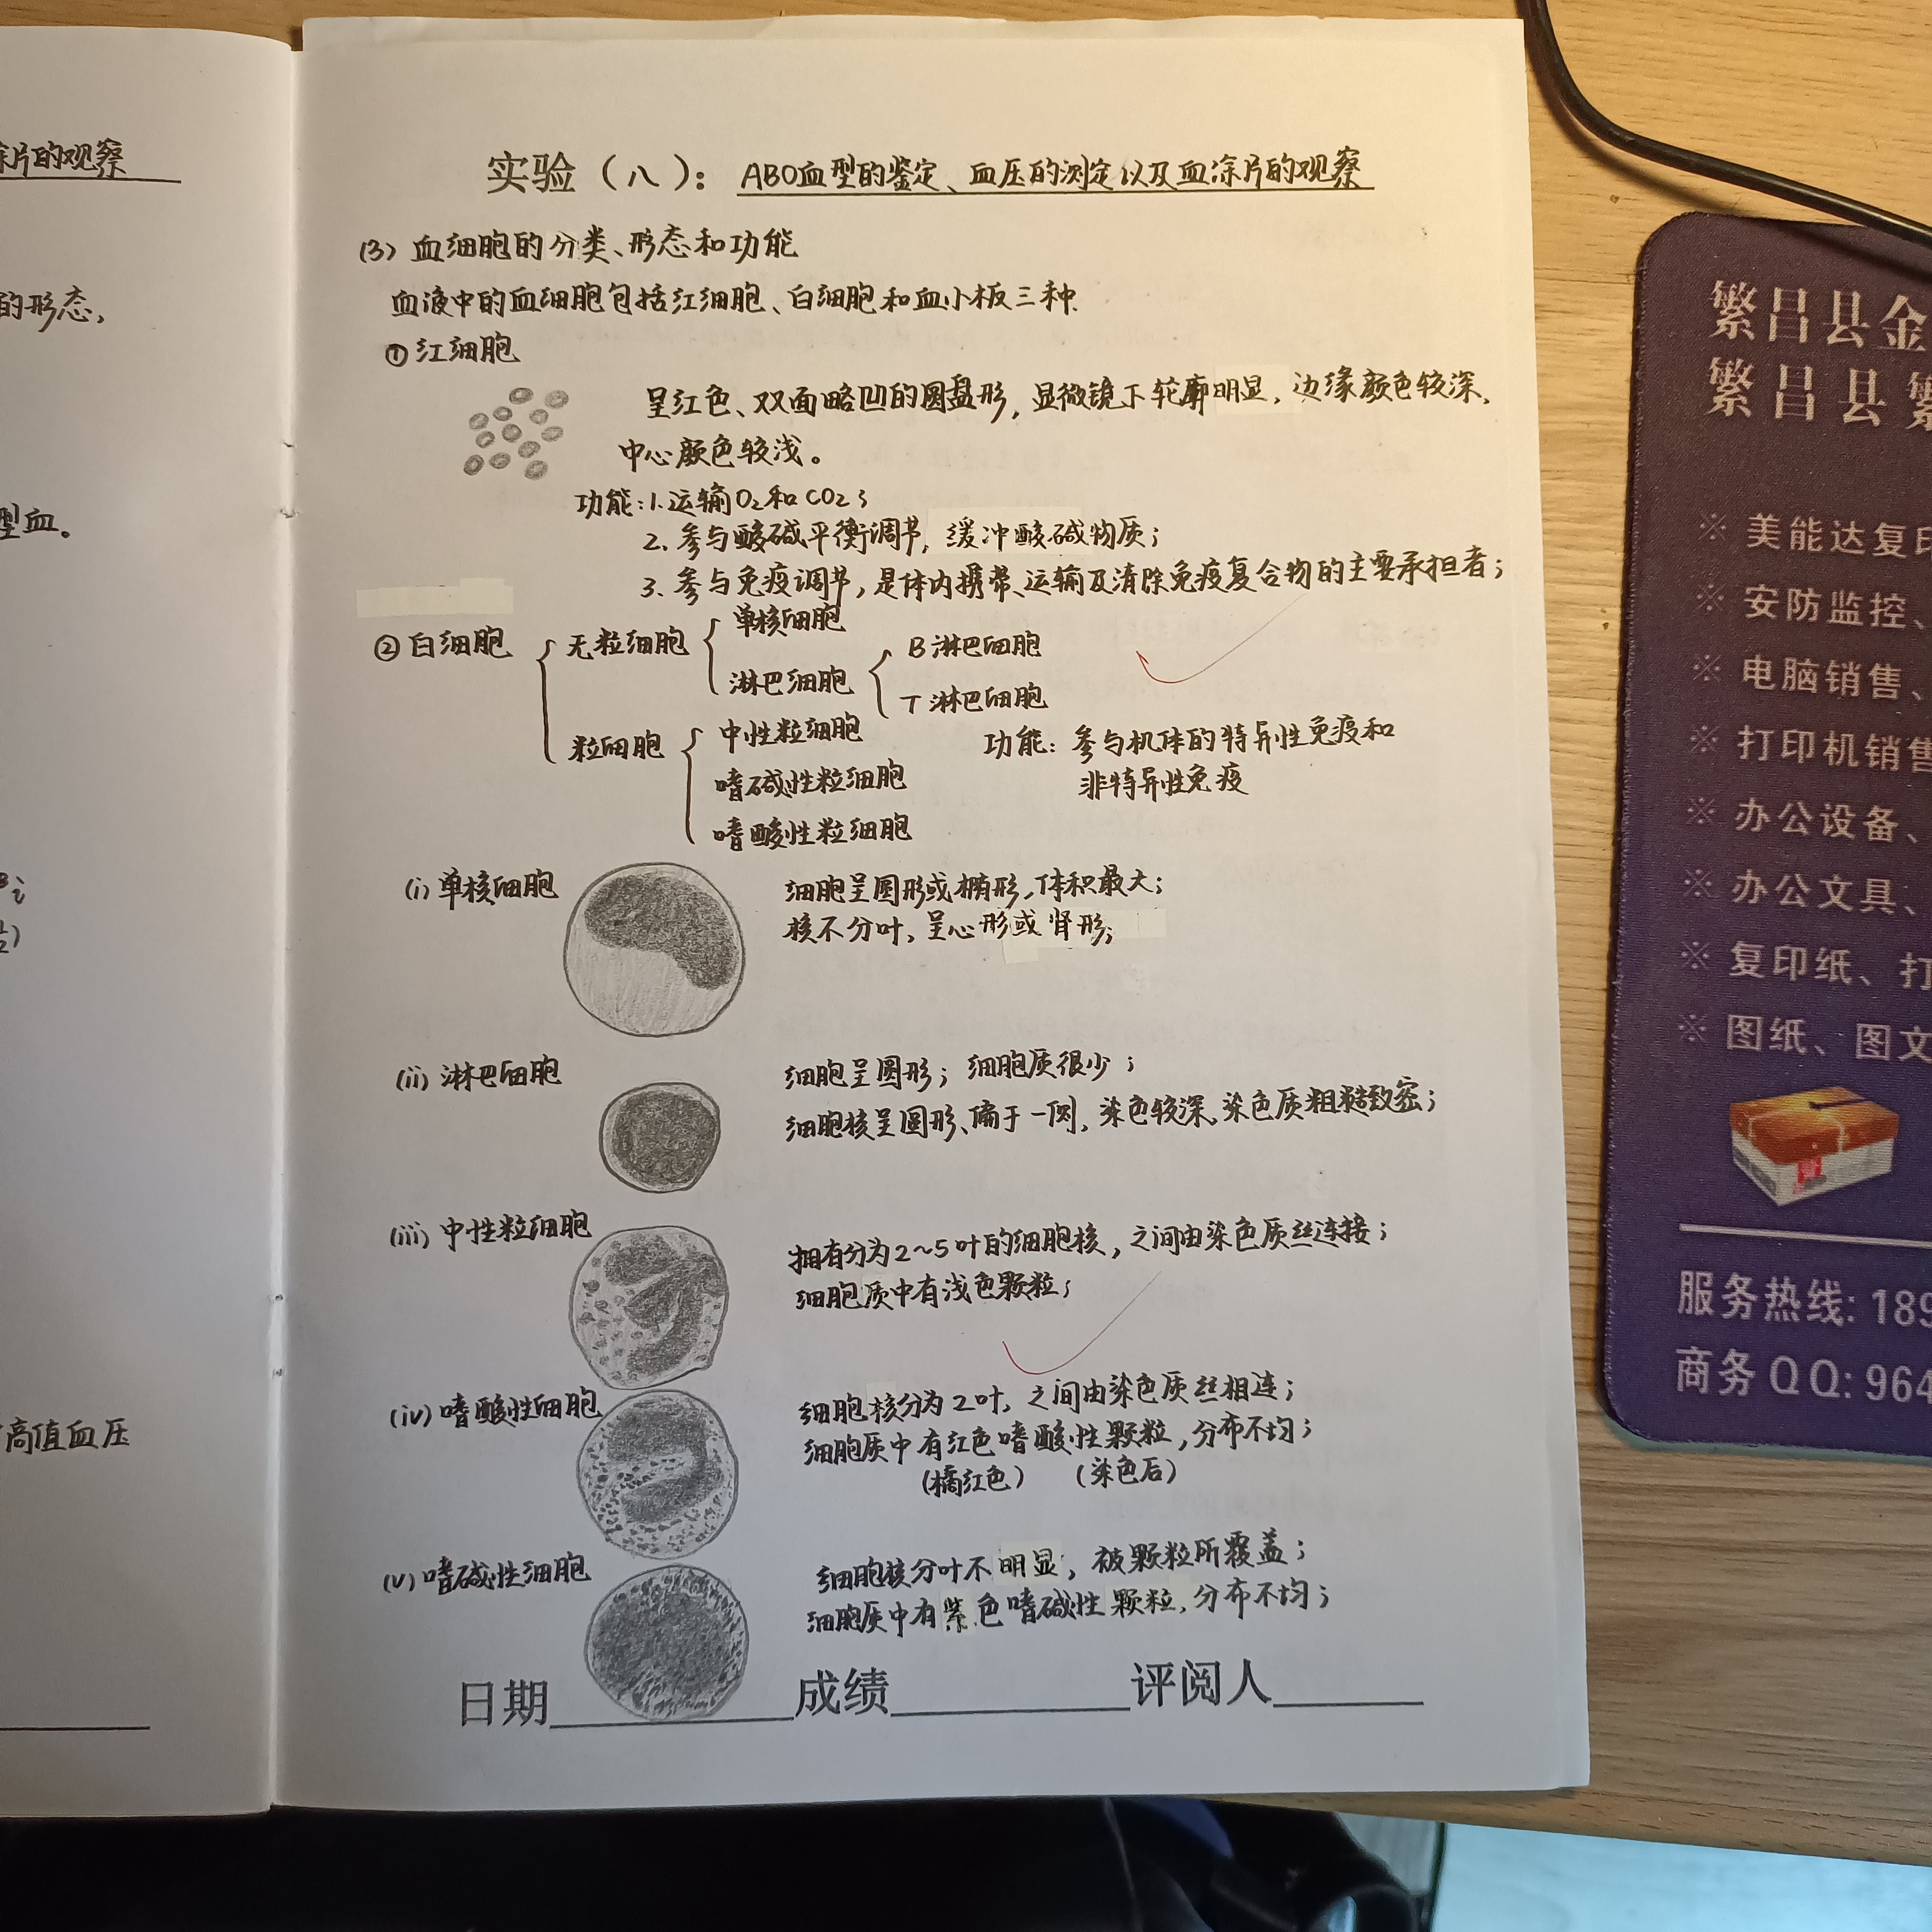 涂片的观察
的形态,
型血。
高值血压
实验（八）：ABO血型的鉴定、血压的测定以及血涂片的观察
(3) 血细胞的分类、形态和功能
血液中的血细胞包括红细胞、白细胞和血小板三种.
① 红细胞
呈红色、双面略凹的圆盘形，显微镜下轮廓明显，边缘颜色较深，
中心颜色较浅。
功能：1.运输O₂和CO₂；
2. 参与酸碱平衡调节，缓冲酸碱物质；
3. 参与免疫调节，是体内携带、运输及清除免疫复合物的主要承担者；
② 白细胞
无粒细胞
单核细胞
淋巴细胞
B淋巴细胞
T淋巴细胞
粒细胞
中性粒细胞
嗜碱性粒细胞
嗜酸性粒细胞
功能：参与机体的特异性免疫和
非特异性免疫
(i) 单核细胞
细胞呈圆形或椭形，体积最大；
核不分叶，呈心形或肾形；
(ii) 淋巴细胞
细胞呈圆形；细胞质很少；
细胞核呈圆形、偏于一侧，染色较深、染色质粗糙致密；
(iii) 中性粒细胞
拥有分为2~5叶的细胞核，之间由染色质丝连接；
细胞质中有浅色颗粒；
(iv) 嗜酸性细胞
细胞核分为2叶，之间由染色质丝相连；
细胞质中有红色嗜酸性颗粒，分布不均；
(橘红色) (染色后)
(v) 嗜碱性细胞
细胞核分叶不明显，被颗粒所覆盖；
细胞质中有紫色嗜碱性颗粒，分布不均；
日期 成绩 评阅人
繁昌县金
繁昌县繁
※ 美能达复印
※ 安防监控、
※ 电脑销售、
※ 打印机销售
※ 办公设备、
※ 办公文具、
※ 复印纸、打
※ 图纸、图文
服务热线: 189
商务QQ: 964